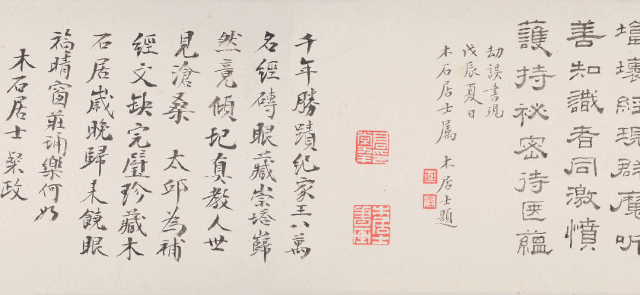 壞經現群魔听
善知識者同激憤
護持祕密待匧蘊
劫誤書現
戊辰夏日
木石居士屬 木居士題
千年勝蹟紀家王八萬
名經磚眼藏崇塔巋
然竟傾圮真教人世
見滄桑 太邱為補
經文缺完璧珍藏木
石居歲晚歸來饒眼
福晴窗莊誦樂何如
木石居士 粲政